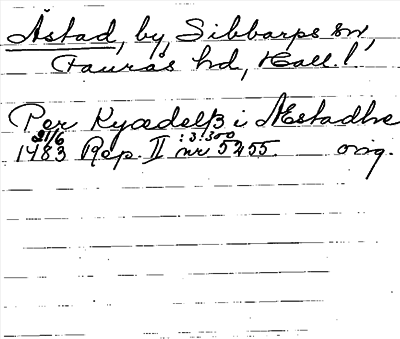 Åstad, by, Sibbarps sn,
Faurås hd, Hall. l.
Per Kyædelß i Æstadhe
21/6 :3:300
1483 Rep. II nr 5455. orig.